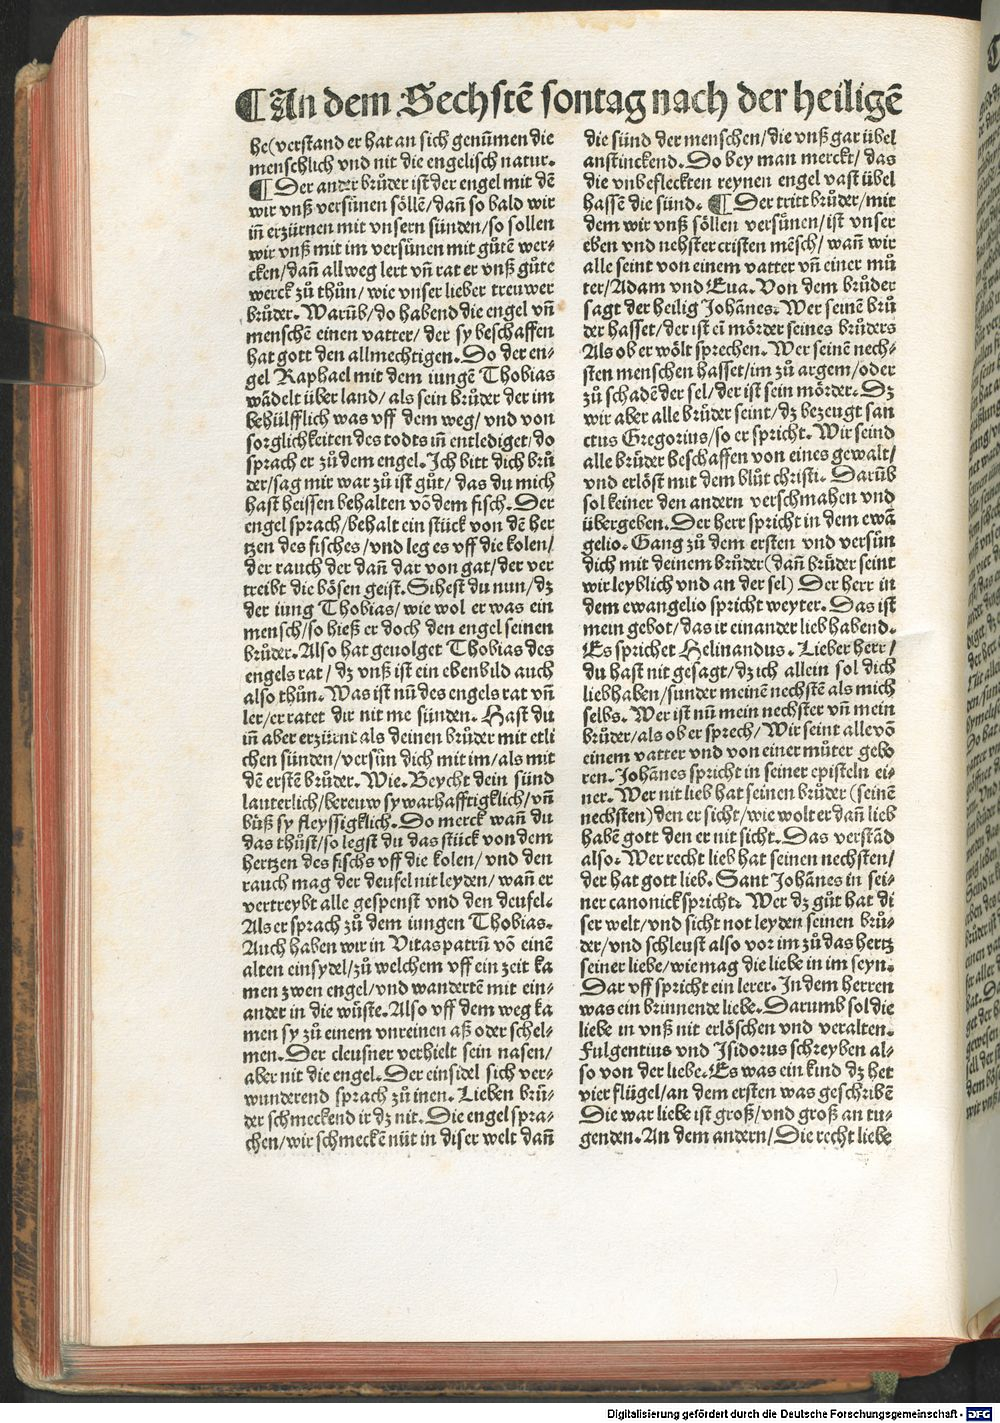 ¶ An dem Sechstē sontag nach der heiligē
he(verstand er hat an sich genūmen die
menschlich vnd nit die engelisch natur.
¶ Der ander brůder ist der engel mit dē
wir vnß versünen söllē/dañ so bald wir
iñ erzürnen mit vnsern sünden/so sollen
wir vnß mit im versůnen mit gůtē wer⸗
cken/dañ allweg lert vñ rat er vnß gůte
werck zů thůn/wie vnser lieber treuwer
brůder. Warūb/do habend die engel vñ
menschē einen vatter/der sy beschaffen
hat gott den allmechtigen. Do der en⸗
gel Raphael mit dem iungē Thobias
wādelt über land/als sein brůder der im
behülfflich was vff dem weg/vnd von
sorglichkeiten des todts iñ entlediget/do
sprach er zů dem engel. Ich bitt dich brů
der/sag mir war zů ist gůt/das du mich
hast heissen behalten vō dem fisch. Der
engel sprach/behalt ein stück von dē her
tzen des fisches/vnd leg es vff die kolen/
der rauch der dañ dar von gat/der ver
treibt die bösen geist. Sihest du nun/dz
der iung Thobias/wie wol er was ein
mensch/so hieß er doch den engel seinen
brůder. Also hat geuolget Thobias des
engels rat/dz vnß ist ein ebenbild auch
also thůn. Was ist nū des engels rat vñ
ler/er ratet dir nit me sünden. Hast du
iñ aber erzürnt als deinen brůder mit etli
chen sünden/versůn dich mit im/als mit
dē erstē brůder. Wie. Beycht dein sünd
lauterlich/bereuw sy warhafftigklich/vñ
bůß sy fleyssigklich. Do merck wañ du
das thůst/so legst du das stück von dem
hertzen des fischs vff die kolen/vnd den
rauch mag der deufel nit leyden/wañ er
vertreybt alle gespenst vnd den deufel.
Als er sprach zů dem iungen Thobias.
Auch haben wir in Vitaspatrū vō einē
alten einsydel/zů welchem vff ein zeit ka
men zwen engel/vnd wandertē mit ein⸗
ander in die wüste. Also vff dem weg ka
men sy zů einem vnreinen aß oder schel⸗
men. Der cleusner verhielt sein nasen/
aber nit die engel. Der einsidel sich ver⸗
wunderend sprach zů inen. Lieben brü⸗
der schmeckend ir dz nit. Die engel spra⸗
chen/wir schmeckē nüt in diser welt dañ
die sünd der menschen/die vnß gar übel
anstinckend. Do bey man merckt/das
die vnbefleckten reynen engel vast übel
hassē die sünd. ¶ Der tritt brůder/mit
dem wir vnß söllen versůnen/ist vnser
eben vnd nehster cristen mēsch/wañ wir
alle seint von einem vatter vñ einer mů
ter/Adam vnd Eua. Von dem brůder
sagt der heilig Johānes. Wer seinē brů
der hasset/der ist eī mörder seines brůders
Als ob er wölt sprechen. Wer seinē nech⸗
sten menschen hasset/im zů argem/oder
zů schadē der sel/der ist sein mörder. Dz
wir aber alle brüder seint/dz bezeugt san
ctus Gregorius/so er spricht. Wir seind
alle brüder beschaffen von eines gewalt/
vnd erlöst mit dem blůt christi. Darūb
sol keiner den andern verschmahen vnd
übergeben. Der herr spricht in dem ewā
gelio. Gang zů dem ersten vnd versůn
dich mit deinem brůder(dañ brüder seint
wir leyblich vnd an der sel) Der herr in
dem ewangelio spricht weyter. Das ist
mein gebot/das ir einander lieb habend.
Es sprichet Helinandus. Lieber herr/
du hast nit gesagt/dz ich allein sol dich
liebhaben/sunder meinē nechstē als mich
selbs. Wer ist nū mein nechster vñ mein
brůder/als ob er sprech/Wir seint alle vō
einem vatter vnd von einer můter gebo
ren. Johānes spricht in seiner episteln ei⸗
ner. Wer nit lieb hat seinen brůder(seinē
nechsten)den er sicht/wie wolt er dañ lieb
habē gott den er nit sicht. Das verstād
also. Wer recht lieb hat seinen nechsten/
der hat gott lieb. Sant Johānes in sei⸗
ner canonick spricht. Wer dz gůt hat di
ser welt/vnd sicht not leyden seinen brů⸗
der/vnd schleust also vor im zů das hertz
seiner liebe/wie mag die liebe in im seyn.
Dar vff spricht ein lerer. In dem herren
was ein brinnende liebe. Darumb sol die
liebe in vnß nit erlöschen vnd veralten.
Fulgentius vnd Isidorus schreyben al⸗
so von der liebe. Es was ein kind dz het
vier flügel/an dem ersten was geschribē
Die war liebe ist groß/vnd groß an tu⸗
genden. An dem andern/Die recht liebe
Digitalisierung gefördert durch die Deutsche Forschungsgemeinschaft - DFG